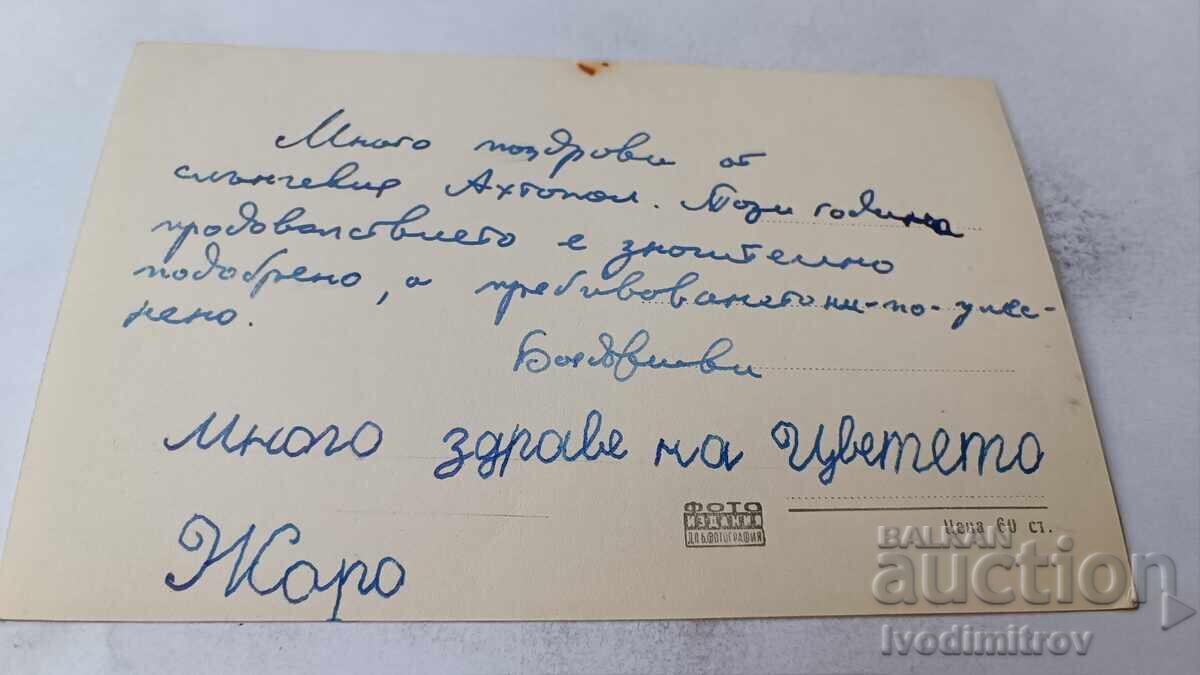 Много поздрави от
слънчевия Ахтопол. Тази година
продоволствието е значително
подобрено, а пребиваването ни - по-улес-
нено.
много здраве на Цветето
Жоро
ФОТО
ИЗДАНИЯ
ДП БЪЛГ. ФОТОГРАФИЯ
Цена 60 ст.
BALKAN
auction
Ivodimitrov